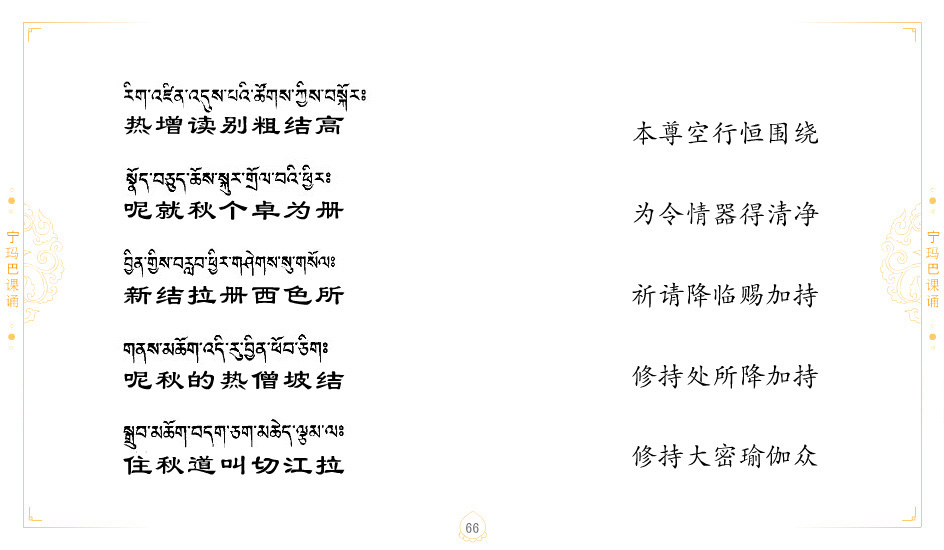 རིག་འཛིན་འདུས་པའི་ཚོགས་ཀྱིས་བསྐོར༔
热增读别粗结高
本尊空行恒围绕
སྣོད་བཅུད་ཆོས་སྐུར་གྲོལ་བའི་ཕྱིར༔
呢就秋个卓为册
为令情器得清净
བྱིན་གྱིས་བརླབ་ཕྱིར་གཤེགས་སུ་གསོལ༔
新结拉册西色所
祈请降临赐加持
གནས་མཆོག་འདི་རུ་བྱིན་ཕོབ་ཅིག༔
呢秋的热僧坡结
修持处所降加持
སྒྲུབ་མཆོག་བདག་ཅག་མཆེད་ལྕམ་ལ༔
住秋道叫切江拉
修持大密瑜伽众
宁玛巴课诵
宁玛巴课诵
66